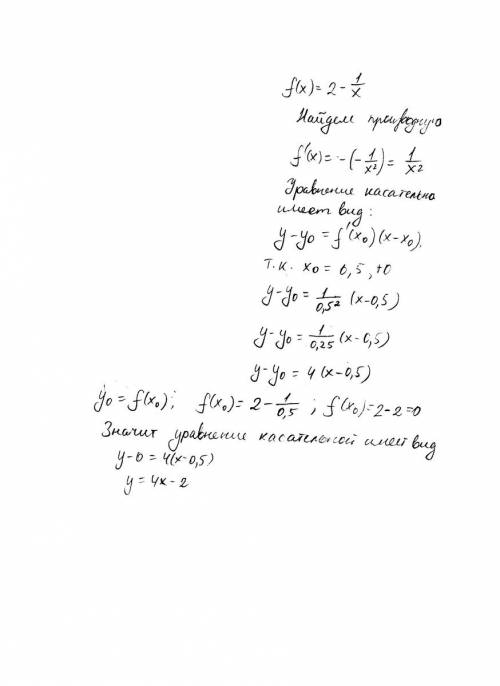 f(x) = 2 - 1/x
Найдем производную
f'(x) = -(-1/x²) = 1/x²
Уравнение касательно
имеет вид:
y-y₀ = f'(x₀)(x-x₀),
т.к. x₀ = 0,5, то
y-y₀ = 1/0,5² (x-0,5)
y-y₀ = 1/0,25 (x-0,5)
y-y₀ = 4 (x-0,5)
y₀ = f(x₀); f(x₀) = 2 - 1/0,5 ; f(x₀) = 2-2=0
Значит уравнение касательной имеет вид
y-0 = 4(x-0,5)
y = 4x-2